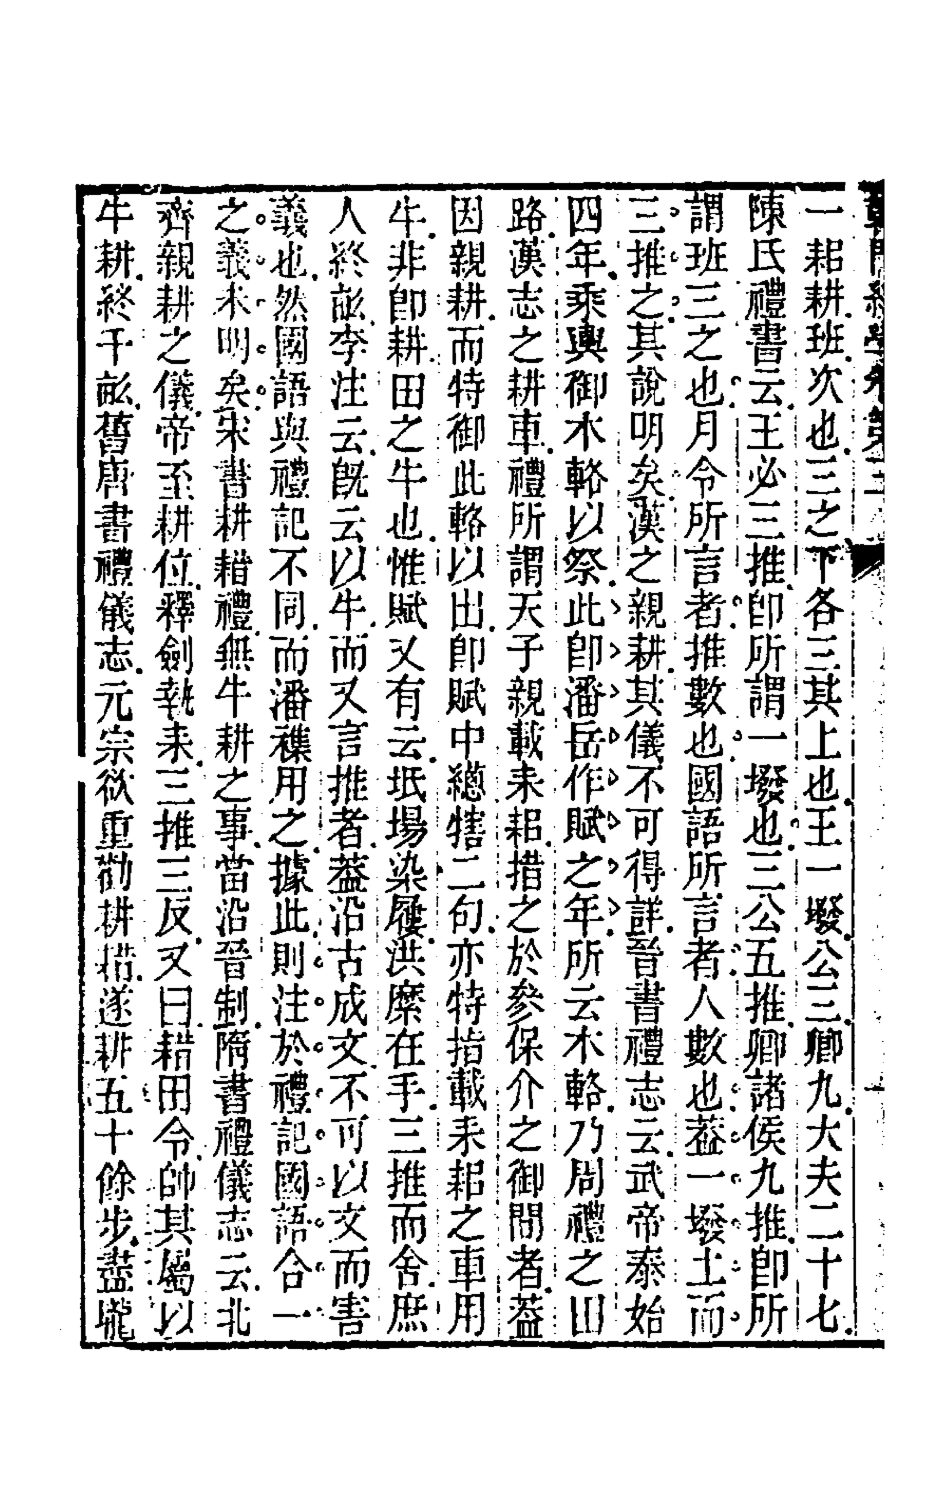 一耜耕班次也三之下各三其上也王一墢公三卿九大夫二十七
陳氏禮書云王必三推卽所謂一墢也三公五推卿諸侯九推卽所
謂班三之也月令所言者推數也國語所言者人數也蓋一墢土而
三推之其說明矣漢之親耕其儀不可得詳晉書禮志云武帝泰始
四年乘輿御木輅以祭此卽潘岳作賦之年所云木輅乃周禮之田
路漢志之耕車禮所謂天子親載耒耜措之於參保介之御閒者蓋
因親耕而特御此輅以出卽賦中總犗二句亦特指載耒耜之車用
牛非卽耕田之牛也惟賦又有云坻場染屨洪縻在手三推而舍庶
人終畝李注云旣云以牛而又言推者蓋沿古成文不可以文而害
義也然國語與禮記不同而潘襍用之據此則注於禮記國語合一
之義未明矣宋書耕耤禮無牛耕之事當沿晉制隋書禮儀志云北
齊親耕之儀帝至耕位釋劍執耒三推三反又曰耤田令帥其屬以
牛耕終千畝舊唐書禮儀志元宗欲重勸耕耤遂耕五十餘步盡壠